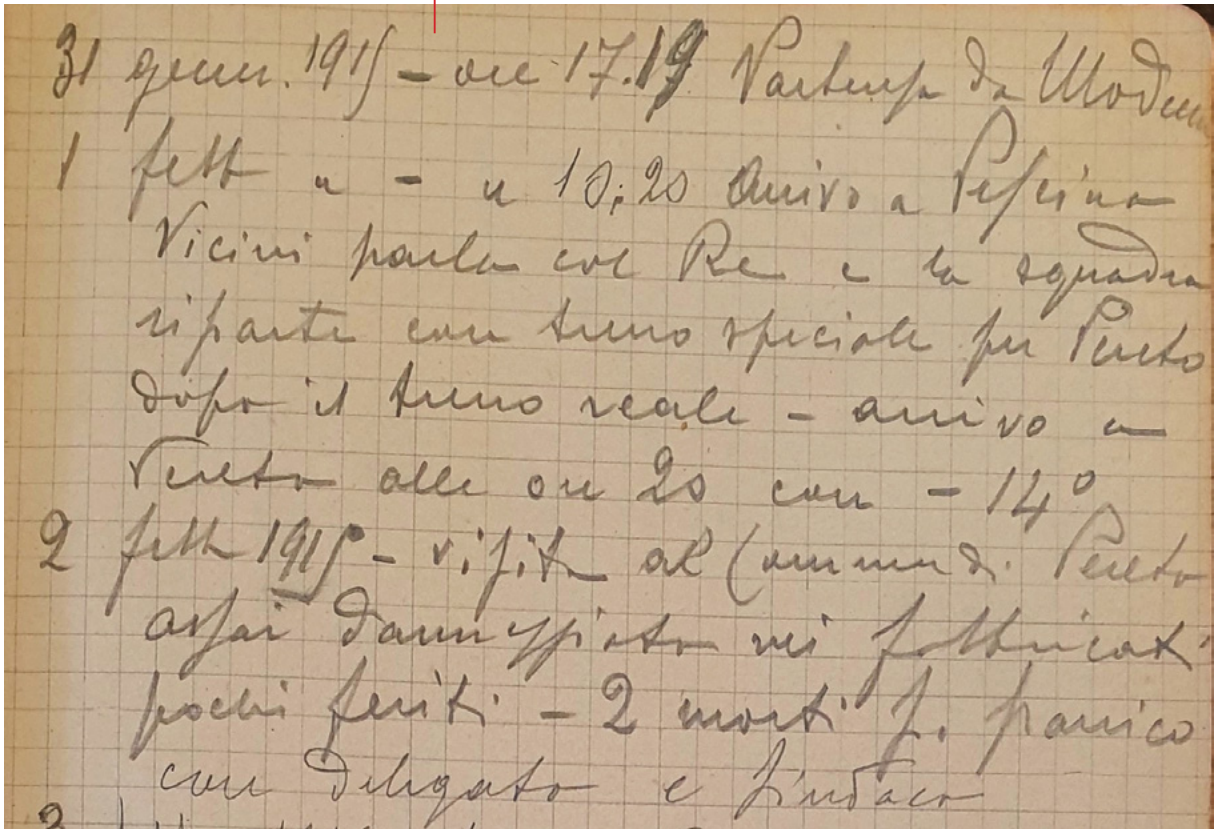 31 genn. 1915 - ore 17.19 Partenza da Modena
1 febb " - " 10.20 Arrivo a Pescina
Vicini parla col Re e la squadra
riparte con treno speciale per Pereto
dopo il treno reale - arrivo a
Pereto alle ore 20 con - 14°
2 febb 1915 - visita al Comune di Pereto
assai danneggiato nei fabbricati
pochi feriti - 2 morti p. panico
con Delegato e Sindaco
3